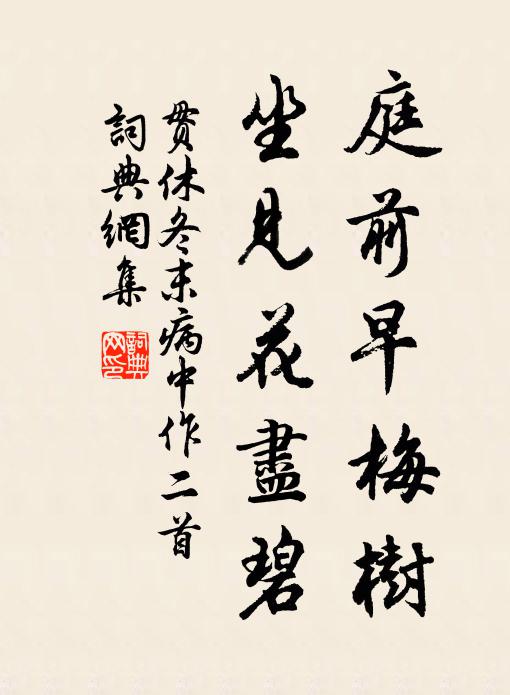 庭前早梅樹
坐見花盡碧
貫休冬末病中作二首
詞典網集
詞典
网印